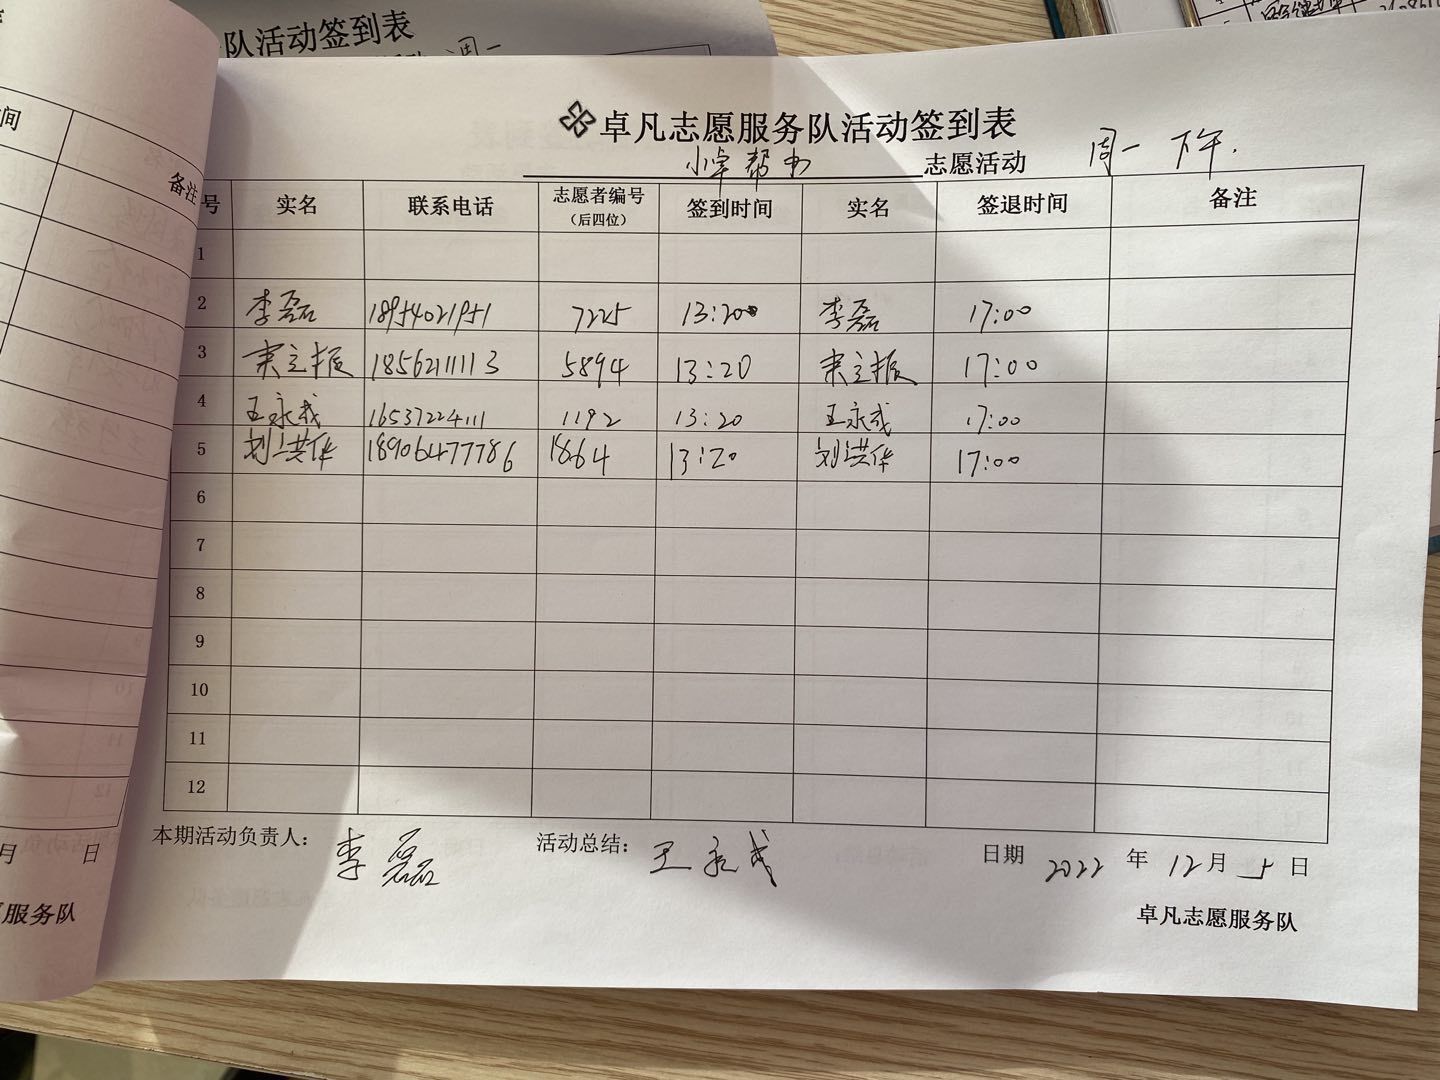 队活动签到表
周一
卓凡志愿服务队活动签到表
小卓帮办 志愿活动 周一下午.
间
备注
号 实名 联系电话 志愿者编号 签到时间 实名 签退时间 备注
（后四位）
1
2 李磊 18954021951 7225 13:20 李磊 17:00
3 来立振 18562111113 5894 13:20 来立振 17:00
4 王永成 16537224111 1192 13:20 王永成 17:00
5 刘洪华 18906477786 1864 13:20 刘洪华 17:00
6
7
8
9
10
11
12
本期活动负责人： 李磊 活动总结： 王永成 日期 2022 年 12 月 5 日
卓凡志愿服务队
月 日
服务队